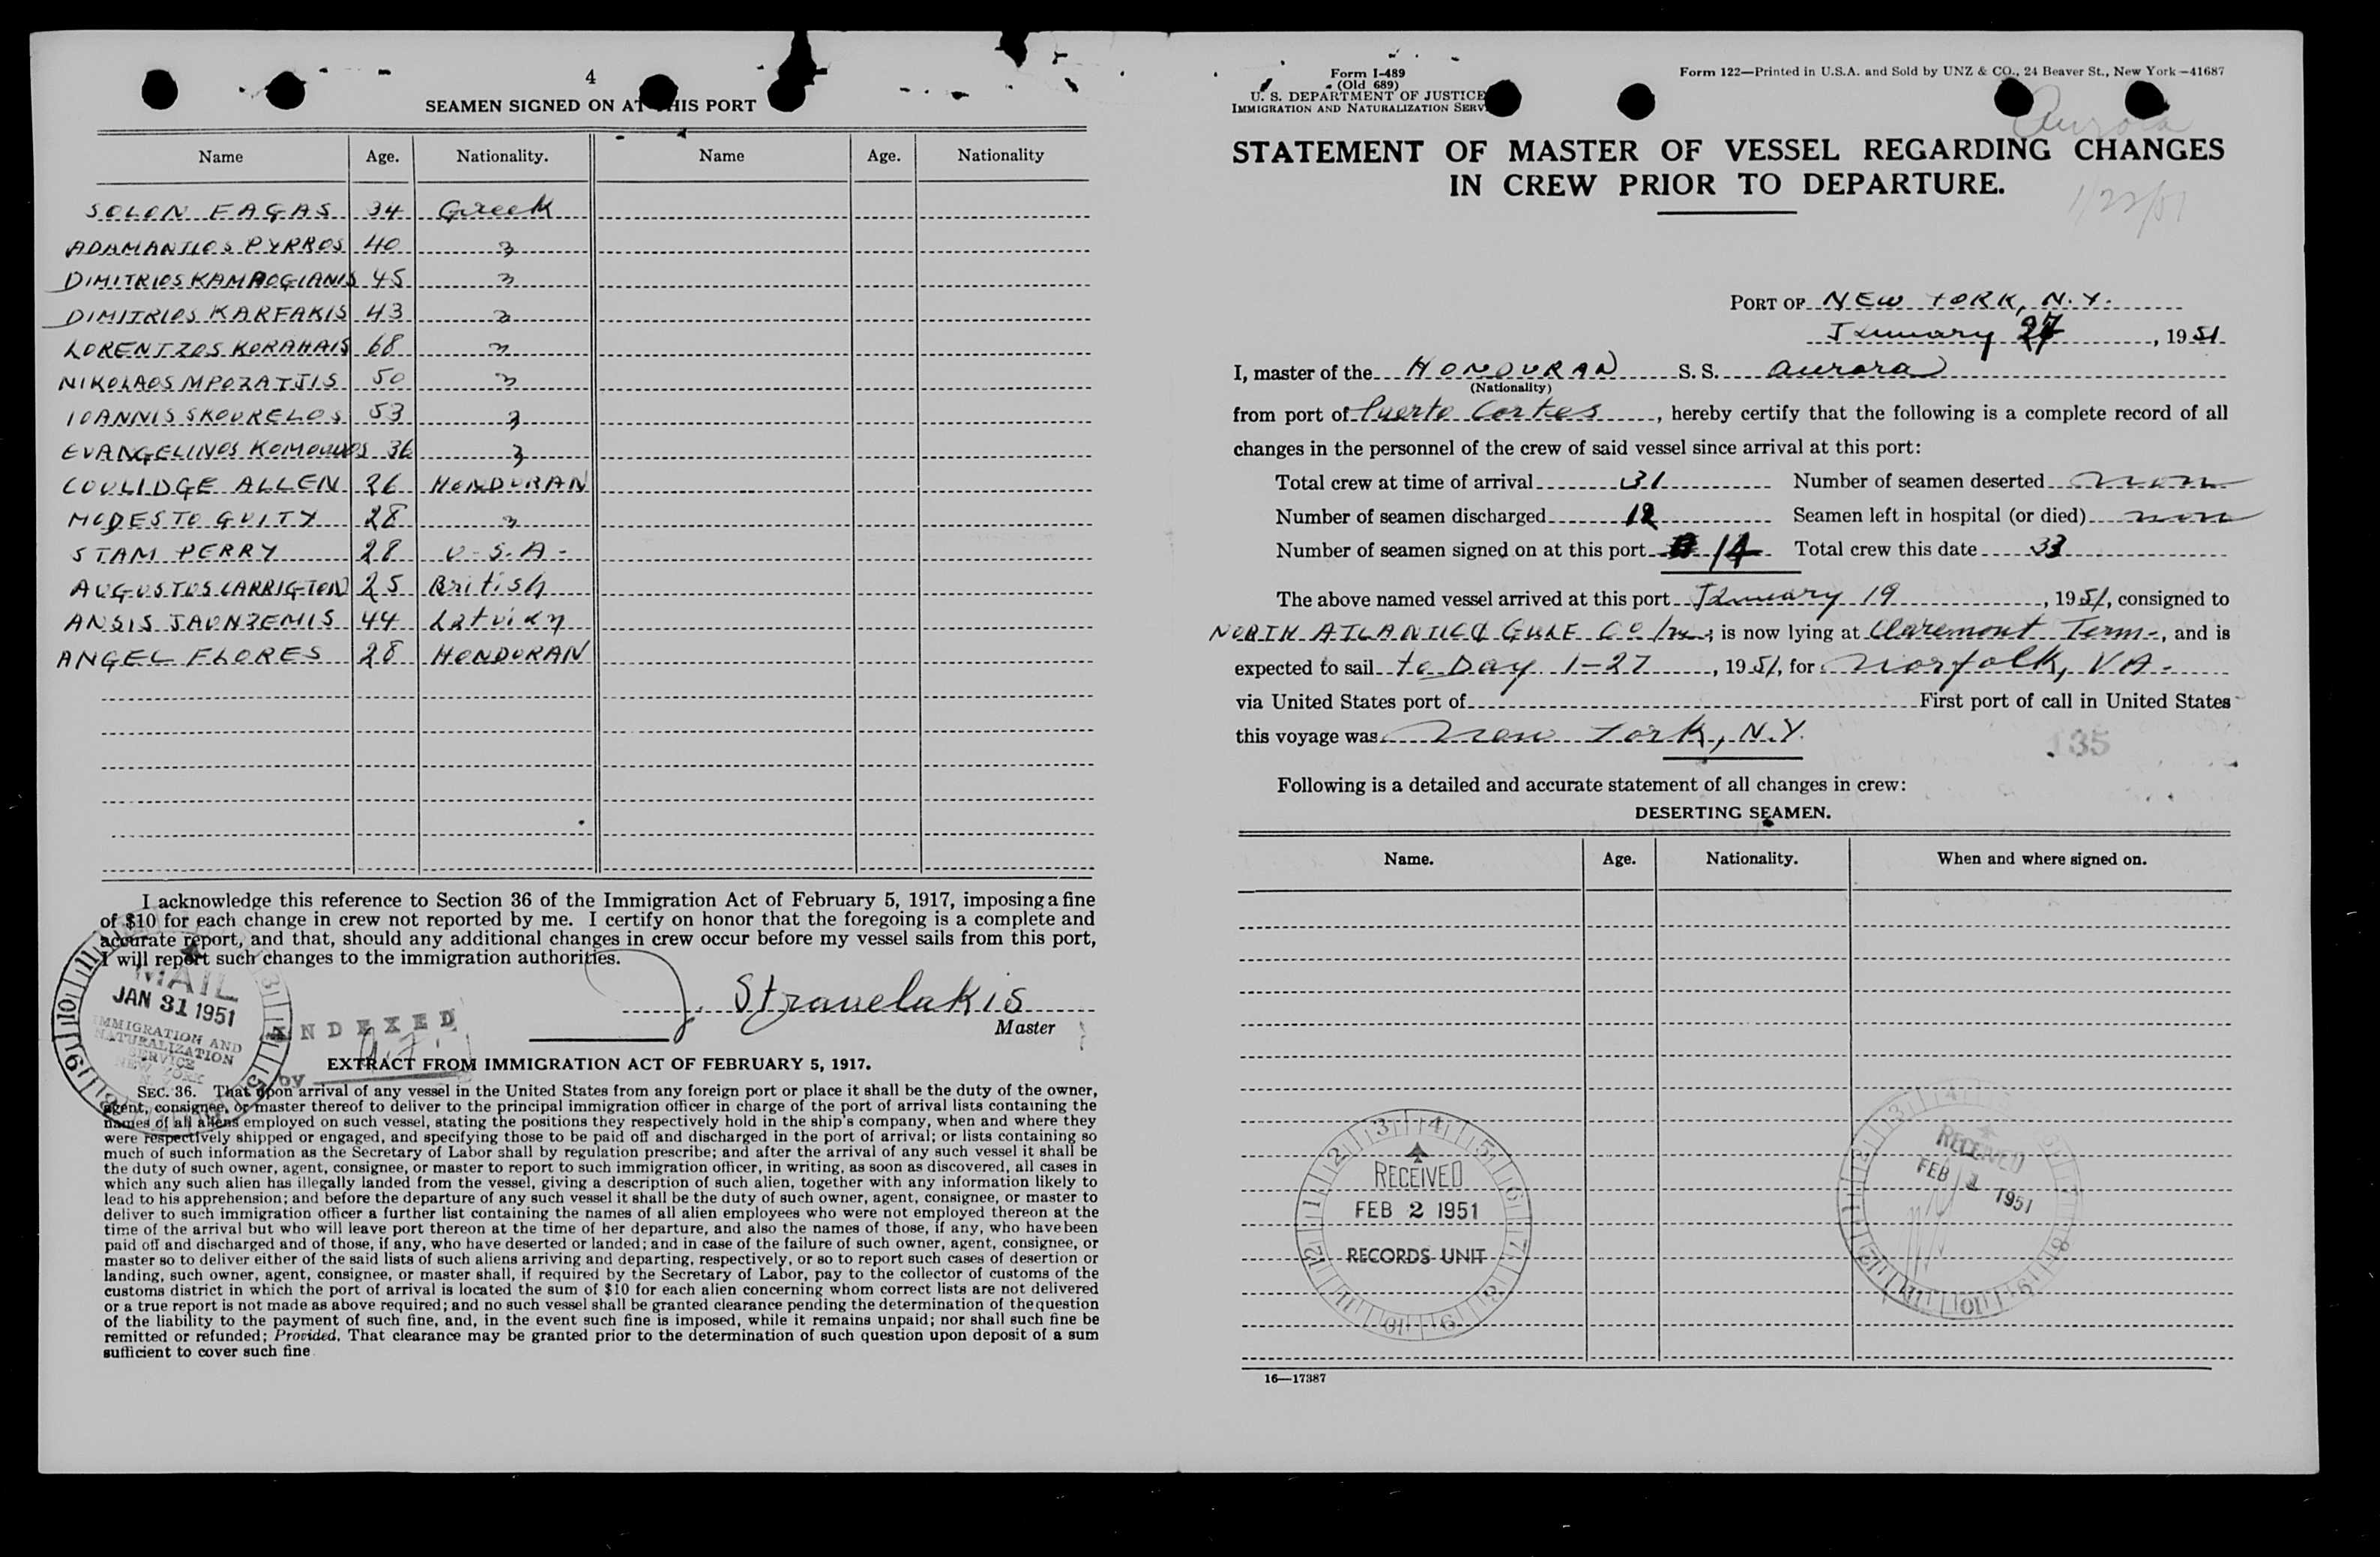 4
SEAMEN SIGNED ON AT THIS PORT
Name Age. Nationality. Name Age. Nationality
SOLON FAGAS 34 Greek
ADAMANTIOS PYRROS 40 "
DIMITRIOS KAMPOGIANIS 45 "
DIMITRIOS KARFAKIS 43 "
LORENTZOS KORAHAIS 68 "
NIKOLAOS MPOZATJIS 50 "
IOANNIS SKOURELOS 53 "
EVANGELINOS 36 "
COOLIDGE ALLEN 26 HONDURAN
MODESTO GUITY 28 "
STAM PERRY 28 U-S.A-
AUGUSTUS CARRIGTON 25 British
ANSIS JAUNZEMIS 44 Latvian
ANGEL FLORES 28 HONDURAN
I acknowledge this reference to Section 36 of the Immigration Act of February 5, 1917, imposing a fine
of $10 for each change in crew not reported by me. I certify on honor that the foregoing is a complete and
accurate report, and that, should any additional changes in crew occur before my vessel sails from this port,
I will report such changes to the immigration authorities.
MAIL
JAN 31 1951
IMMIGRATION AND
NATURALIZATION
SERVICE
NEW YORK
N. Y.
INDEXED
by
Stravelakis
Master
EXTRACT FROM IMMIGRATION ACT OF FEBRUARY 5, 1917.
SEC. 36. That upon arrival of any vessel in the United States from any foreign port or place it shall be the duty of the owner,
agent, consignee, or master thereof to deliver to the principal immigration officer in charge of the port of arrival lists containing the
names of all aliens employed on such vessel, stating the positions they respectively hold in the ship's company, when and where they
were respectively shipped or engaged, and specifying those to be paid off and discharged in the port of arrival; or lists containing so
much of such information as the Secretary of Labor shall by regulation prescribe; and after the arrival of any such vessel it shall be
the duty of such owner, agent, consignee, or master to report to such immigration officer, in writing, as soon as discovered, all cases in
which any such alien has illegally landed from the vessel, giving a description of such alien, together with any information likely to
lead to his apprehension; and before the departure of any such vessel it shall be the duty of such owner, agent, consignee, or master to
deliver to such immigration officer a further list containing the names of all alien employees who were not employed thereon at the
time of the arrival but who will leave port thereon at the time of her departure, and also the names of those, if any, who have been
paid off and discharged and of those, if any, who have deserted or landed; and in case of the failure of such owner, agent, consignee, or
master so to deliver either of the said lists of such aliens arriving and departing, respectively, or so to report such cases of desertion or
landing, such owner, agent, consignee, or master shall, if required by the Secretary of Labor, pay to the collector of customs of the
customs district in which the port of arrival is located the sum of $10 for each alien concerning whom correct lists are not delivered
or a true report is not made as above required; and no such vessel shall be granted clearance pending the determination of the question
of the liability to the payment of such fine, and, in the event such fine is imposed, while it remains unpaid; nor shall such fine be
remitted or refunded; Provided, That clearance may be granted prior to the determination of such question upon deposit of a sum
sufficient to cover such fine.
Form I-489
(Old 689)
U. S. DEPARTMENT OF JUSTICE
IMMIGRATION AND NATURALIZATION SERV
Form 122—Printed in U.S.A. and Sold by UNZ & CO., 24 Beaver St., New York—41687
Aurora
STATEMENT OF MASTER OF VESSEL REGARDING CHANGES
IN CREW PRIOR TO DEPARTURE.
1/22/51
PORT OF NEW YORK, N.Y.
January 27, 1951
I, master of the HONDURAN S. S. Aurora
(Nationality)
from port of Puerto Cortes, hereby certify that the following is a complete record of all
changes in the personnel of the crew of said vessel since arrival at this port:
Total crew at time of arrival 31 Number of seamen deserted non
Number of seamen discharged 12 Seamen left in hospital (or died) non
Number of seamen signed on at this port 14 Total crew this date 33
The above named vessel arrived at this port January 19, 1951, consigned to
NORTH ATLANTIC & GULF CO Inc; is now lying at Claremont Term-, and is
expected to sail to Day 1-27, 1951, for Norfolk, VA-
via United States port of First port of call in United States
this voyage was New York, N.Y.
135
Following is a detailed and accurate statement of all changes in crew:
DESERTING SEAMEN.
Name. Age. Nationality. When and where signed on.
RECEIVED
FEB 2 1951
RECORDS UNIT
RECEIVED
FEB 1 1951
16—17387